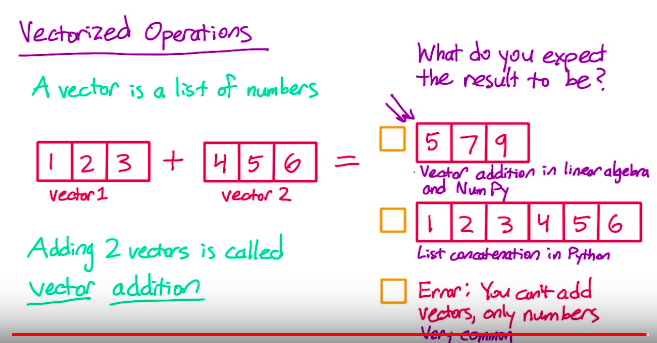 Vectorized Operations
A vector is a list of numbers
1 2 3 + 4 5 6 =
vector 1
vector 2
Adding 2 vectors is called
vector addition
What do you expect
the result to be?
5 7 9
Vector addition in linear algebra
and NumPy
1 2 3 4 5 6
List concatenation in Python
Error: You can't add
vectors, only numbers
Very common